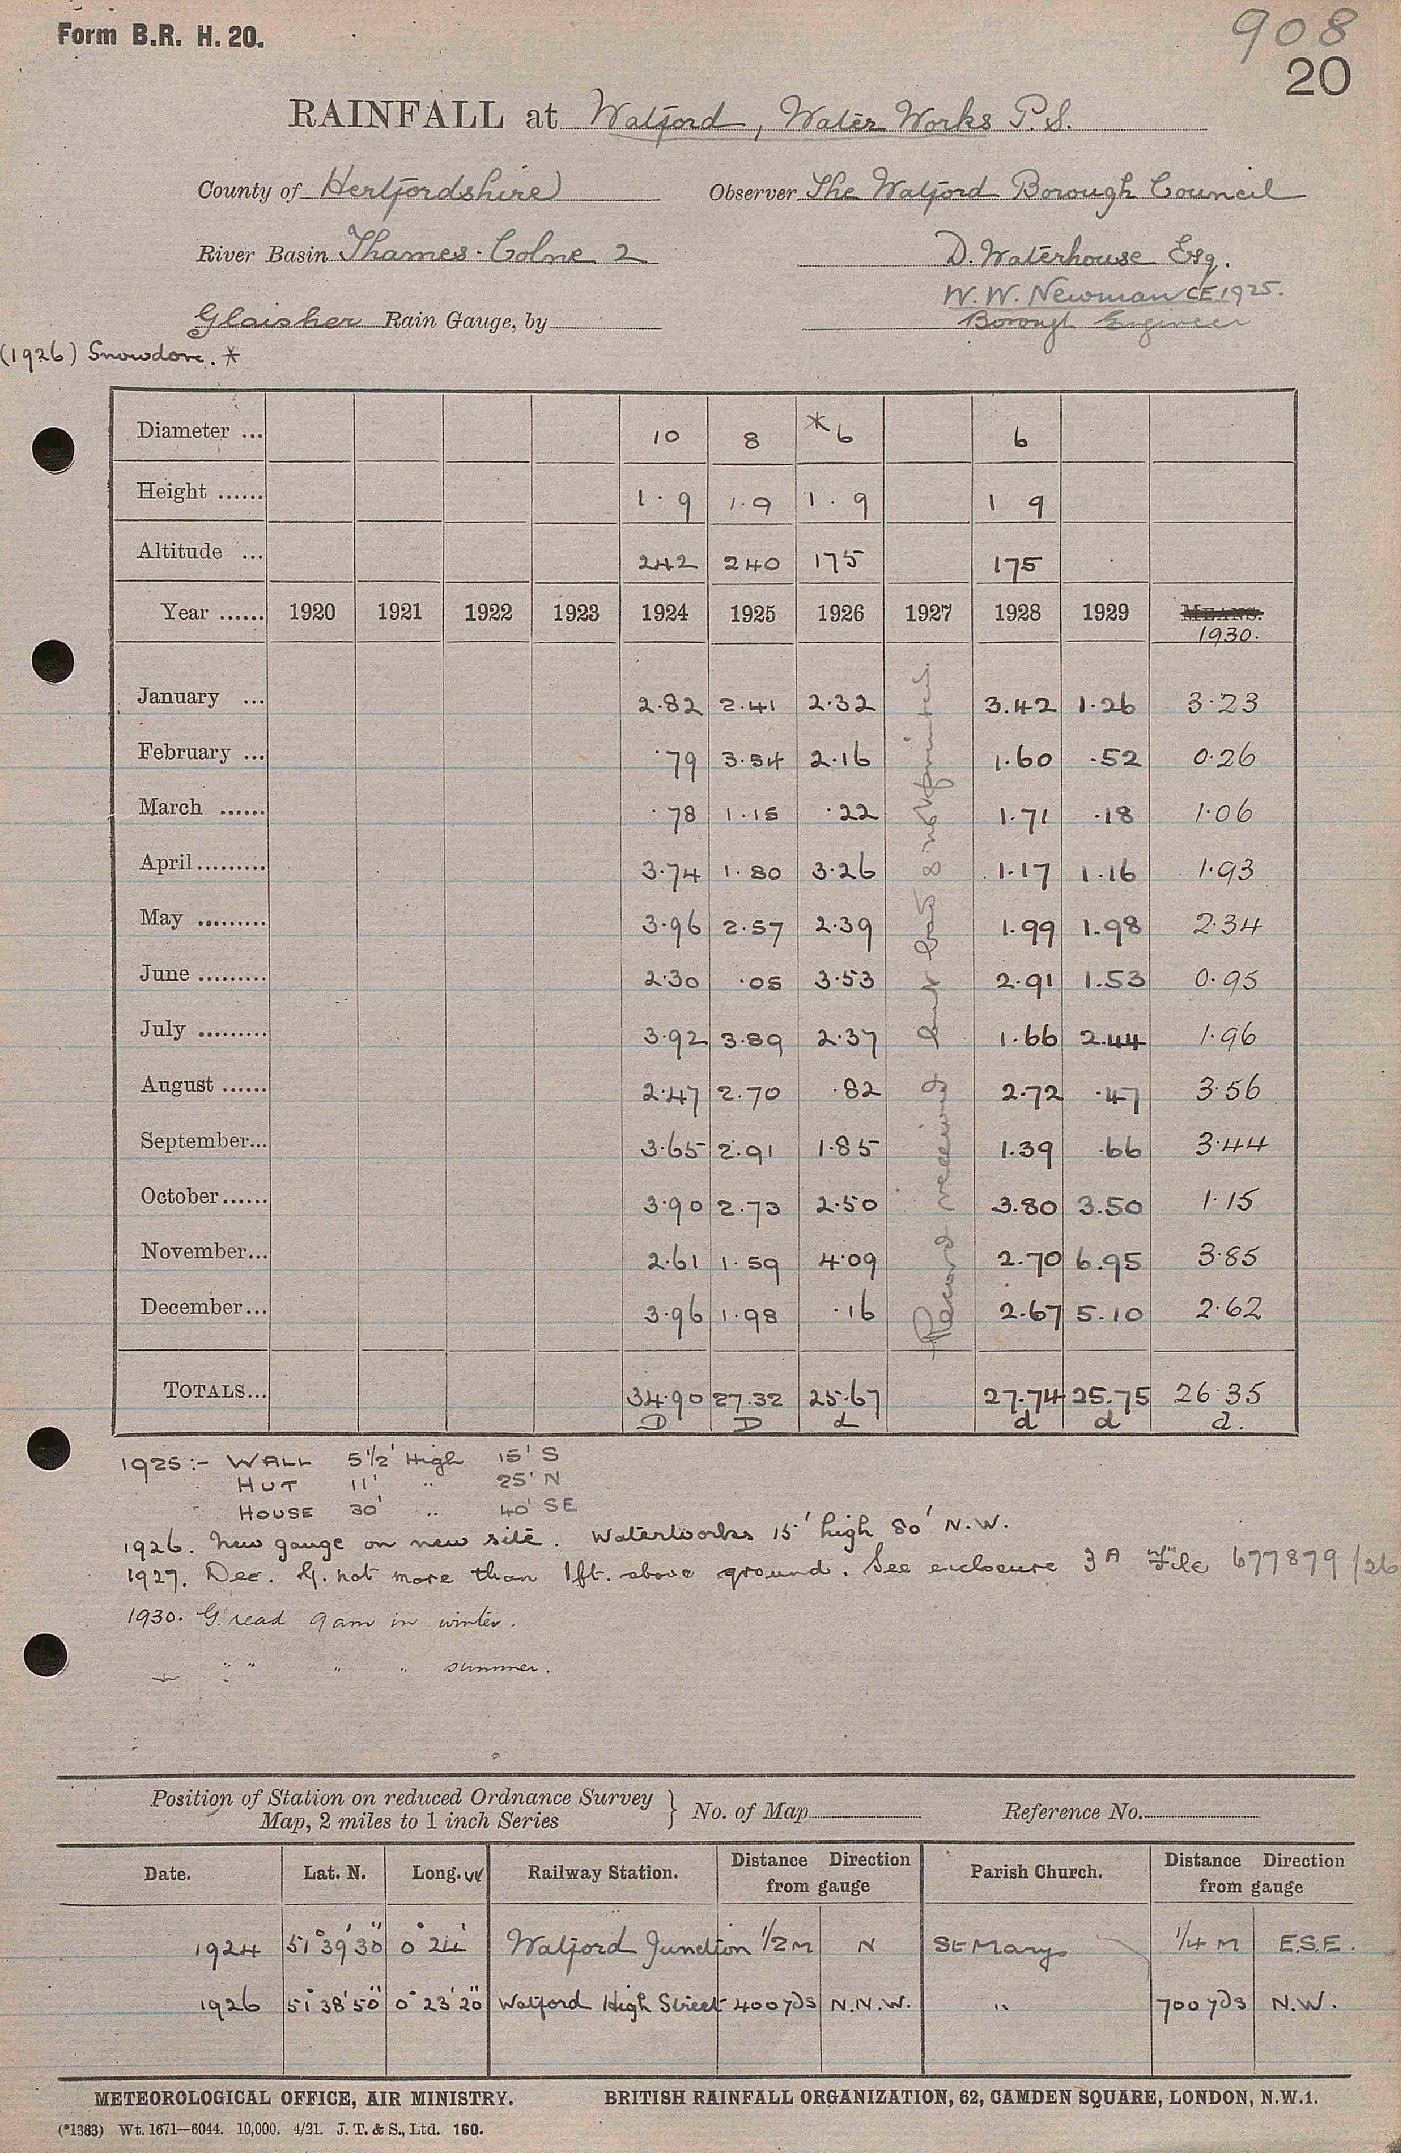 Form B.R. H. 20.
908
20
RAINFALL at Watford, Water Works P.S.
County of Hertfordshire Observer The Watford Borough Council
River Basin Thames - Colne 2 D. Waterhouse Esq.
W. W. Newman CE 1925.
Glaisher Rain Gauge, by Borough Engineer
(1926) Snowdon. *
Diameter ... 10 8 *6 6
Height ...... 1.9 1.9 1.9 1 9
Altitude ... 242 240 175 175
Year ...... 1920 1921 1922 1923 1924 1925 1926 1927 1928 1929 MEANS.
1930.
January ... 2.82 2.41 2.32 3.42 1.26 3.23
February ... .79 3.54 2.16 1.60 .52 0.26
March ...... .78 1.15 .22 1.71 .18 1.06
April ......... 3.74 1.80 3.26 1.17 1.16 1.93
May ......... 3.96 2.57 2.39 1.99 1.98 2.34
June ......... 2.30 .05 3.53 2.91 1.53 0.95
July ......... 3.92 3.89 2.37 1.66 2.44 1.96
August ...... 2.47 2.70 .82 2.72 .47 3.56
September... 3.65 2.91 1.85 1.39 .66 3.44
October...... 3.90 2.73 2.50 3.80 3.50 1.15
November... 2.61 1.59 4.09 2.70 6.95 3.85
December... 3.96 1.98 .16 2.67 5.10 2.62
Record received but bad & not printed.
TOTALS... 34.90 27.32 25.67 27.74 25.75 26.35
D D d d d d.
1925:- WALL 5 1/2' High 15' S
HUT 11' " 25' N
HOUSE 30' " 40' SE
1926. New gauge on new site. Waterworks 15' high 80' N.W.
1927. Dec. G. not more than 1ft. above ground. See enclosure 3A File 677879/26
1930. G. read 9am in winter.
" " " " summer.
Position of Station on reduced Ordnance Survey
Map, 2 miles to 1 inch Series } No. of Map Reference No.
Date. Lat. N. Long. W Railway Station. Distance Direction
from gauge Parish Church. Distance Direction
from gauge
1924 51° 39' 30" 0° 24' Watford Junction 1/2 M N St Marys 1/4 M E.S.E.
1926 51° 38' 50" 0° 23' 20" Watford High Street 400 yds N.N.W. " 700 yds N.W.
METEOROLOGICAL OFFICE, AIR MINISTRY. BRITISH RAINFALL ORGANIZATION, 62, CAMDEN SQUARE, LONDON, N.W.1.
(*1383) Wt. 1671—6044. 10,000. 4/21. J. T. & S., Ltd. 160.